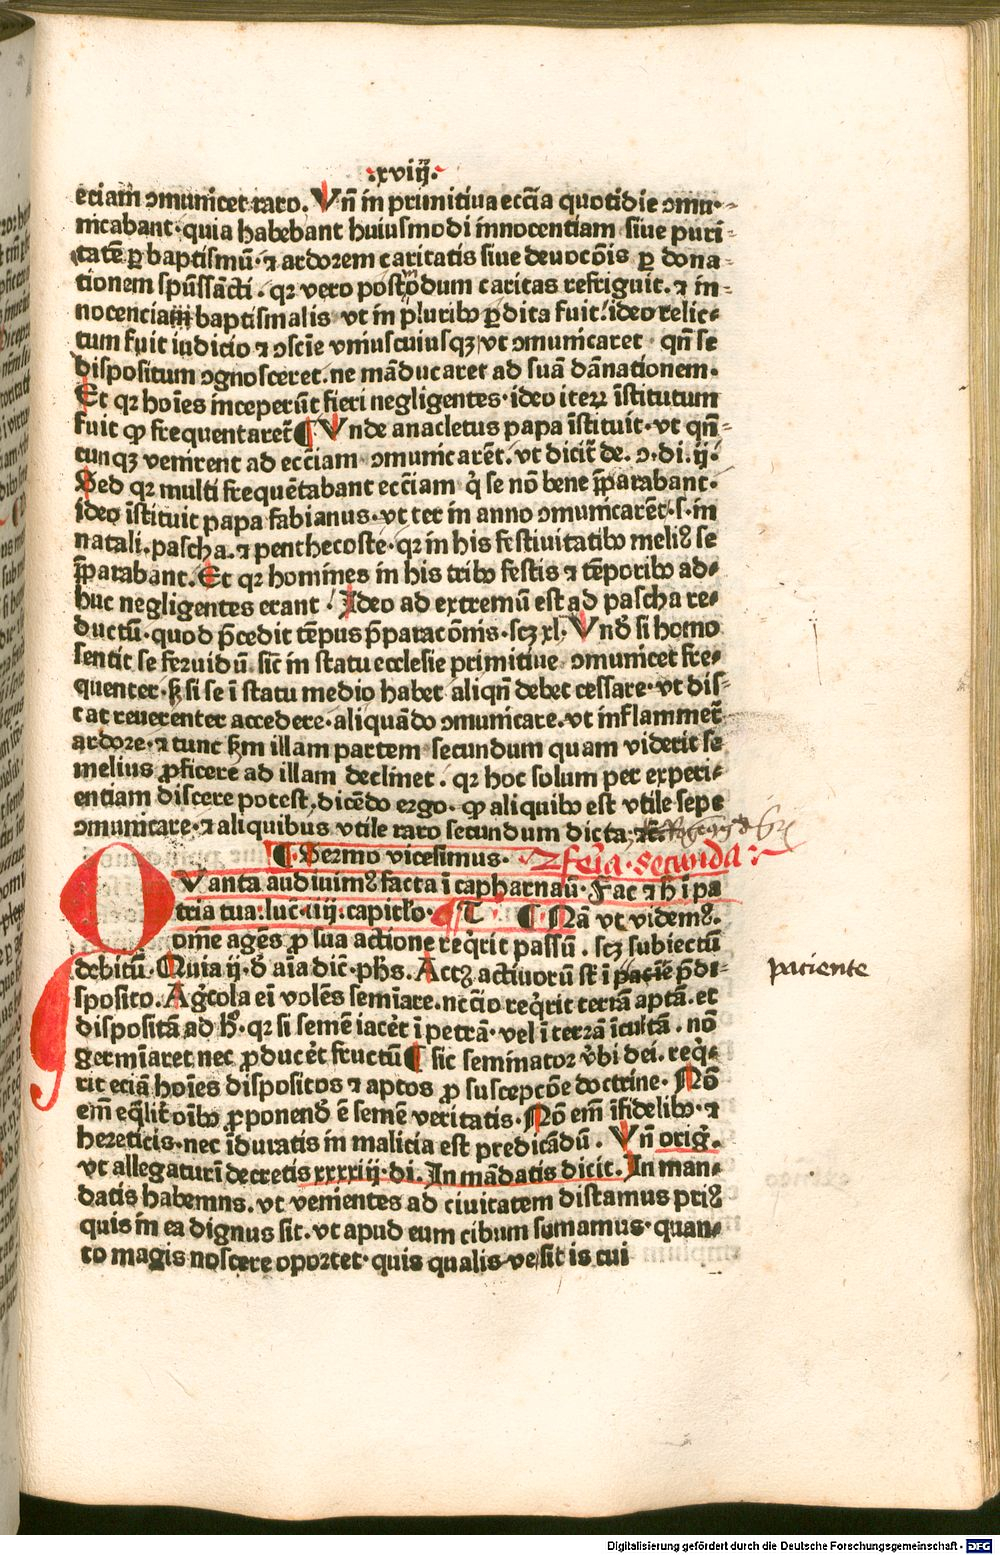 .xviij.
eciam ↄmunicet raro. Vn̄ in primitiua ecc̄ia quotidie ↄmu-
nicabant· quia habebant huiusmodi innocentiam siue puri-
tatē ꝑ baptismū· ⁊ ardorem caritatis siue deuocōis ꝑ dona-
tionem spūssācti. qꝛ vero postmodum caritas refriguit. ⁊ in-
nocenciam baptismalis vt in pluribꝰ ꝑdita fuit. ideo relic-
tum fuit iudicio ⁊ ↄscīe vniuscuiusqꝫ vt ↄmunicaret qn̄ se
dispositum ↄgnosceret. ne māducaret ad suā dānationem.
Et qꝛ hoīes inceperūt fieri negligentes· ideo iteꝝ īstitutum
fuit ꝙ frequentarēt ¶ Vnde anacletus papa īstituit· vt qn̄-
cunqꝫ venirent ad ecc̄iam ↄmunicarēt. vt dicit̄ de. ↄ. di. ij.
Sed qꝛ multi frequētabant ecc̄iam q̇ se nō bene p̄parabant·
ideo īstituit papa fabianus· vt ter in anno ↄmunicarēt· s· in
natali. pascha. ⁊ penthecoste· qꝛ in his festiuitatibꝰ meliꝰ se
p̄parabant. Et qꝛ homines in his tribꝰ festis ⁊ tēporibꝰ ad-
huc negligentes erant. Ideo ad extremū est ad pascha re-
ductū· quod p̄cedit tēpus p̄paracōnis· scꝫ xl. Vnd̄ si homo
sentit se feruidū. sic̄ in statu ecclesie primitiue ↄmunicet fre-
quenter· ꝗ si se ī statu medio habet aliqn̄ debet cessare· vt dis-
cat reuerenter accedere· aliquādo ↄmunicare. vt inflammet̄
ardore· ⁊ tunc ẜm illam partem secundum quam viderit se
melius ꝓficere ad illam declinet. qꝛ hoc solum per experi-
entiam discere potest. dicēdo ergo· ꝙ aliquibꝰ est vtile sepe
ↄmunicare· ⁊ aliquibus vtile raro secundum dicta. ⁊c̄.
¶ Sermo vicesimus· fer̄ia· secunda:
QVanta audiuimꝰ facta ī capharnaū· Fac ⁊ h̄ ī pa
tria tua. luc̄. iiij. capitl̓o· ¶ T ¶ Nā vt videmꝰ.
om̄e agēs ꝓ sua actione req̇rit passū. scꝫ subiectū
debitū· Quia ij. d̄ aīa dic̄. phs. Actꝫ actiuorū st̄ ī pacīe p̄di-
paciente
sposito. Ag̓cola eī volēs semīare. nc̄cīo req̇rit terrā aptā. et
dispositā ad h̓. qꝛ si semē iacēt ī petrā· vel ī terrā īcultā. nō
germīaret nec ꝓducēt fructū ¶ sic seminator v̓bi dei. req̇-
rit eciā hoīes dispositos ⁊ aptos ꝓ suscepcōe doctrine· Nō
em̄ eq̄lit̄ oībꝰ ꝓponend̄ ē semē veritatis· Nō em̄ īfidelibꝰ· ⁊
hereticis· nec īduratis in malicia est predicādū. Vn̄ orig̓.
vt allegatur ī decretis xxxxiij. di. In mādatis dicit. In man-
datis habemns. vt venientes ad ciuitatem distamus priꝰ
quis in ea dignus sit. vt apud eum cibum sumamus· quan-
to magis noscere oportet· quis qualis ve sit is cui
Digitalisierung gefördert durch die Deutsche Forschungsgemeinschaft · DFG